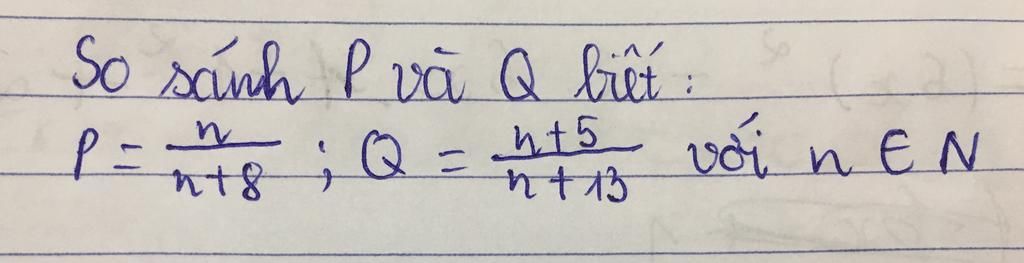 So sánh P và Q biết:
P = n/(n+8) ; Q = (n+5)/(n+13) với n ∈ N